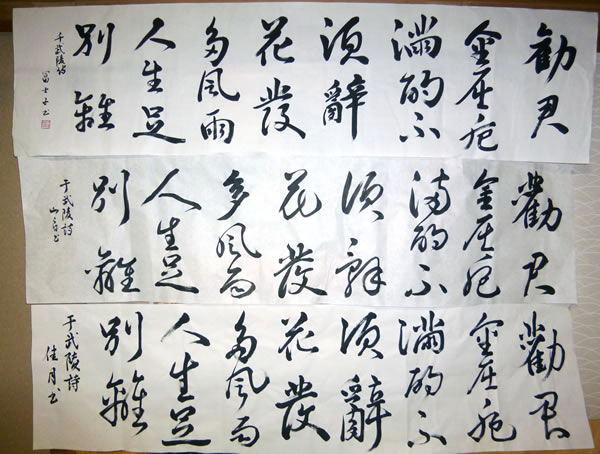 勧君
金屈卮
滿酌不
須辭
花發
多風雨
人生足
別離
于武陵詩
富士子書
勸君
金屈卮
満酌不
須辭
花發
多風雨
人生足
別離
于武陵詩
勸君
金屈卮
滿酌不
須辭
花發
多風雨
人生足
別離
于武陵詩
佳月書